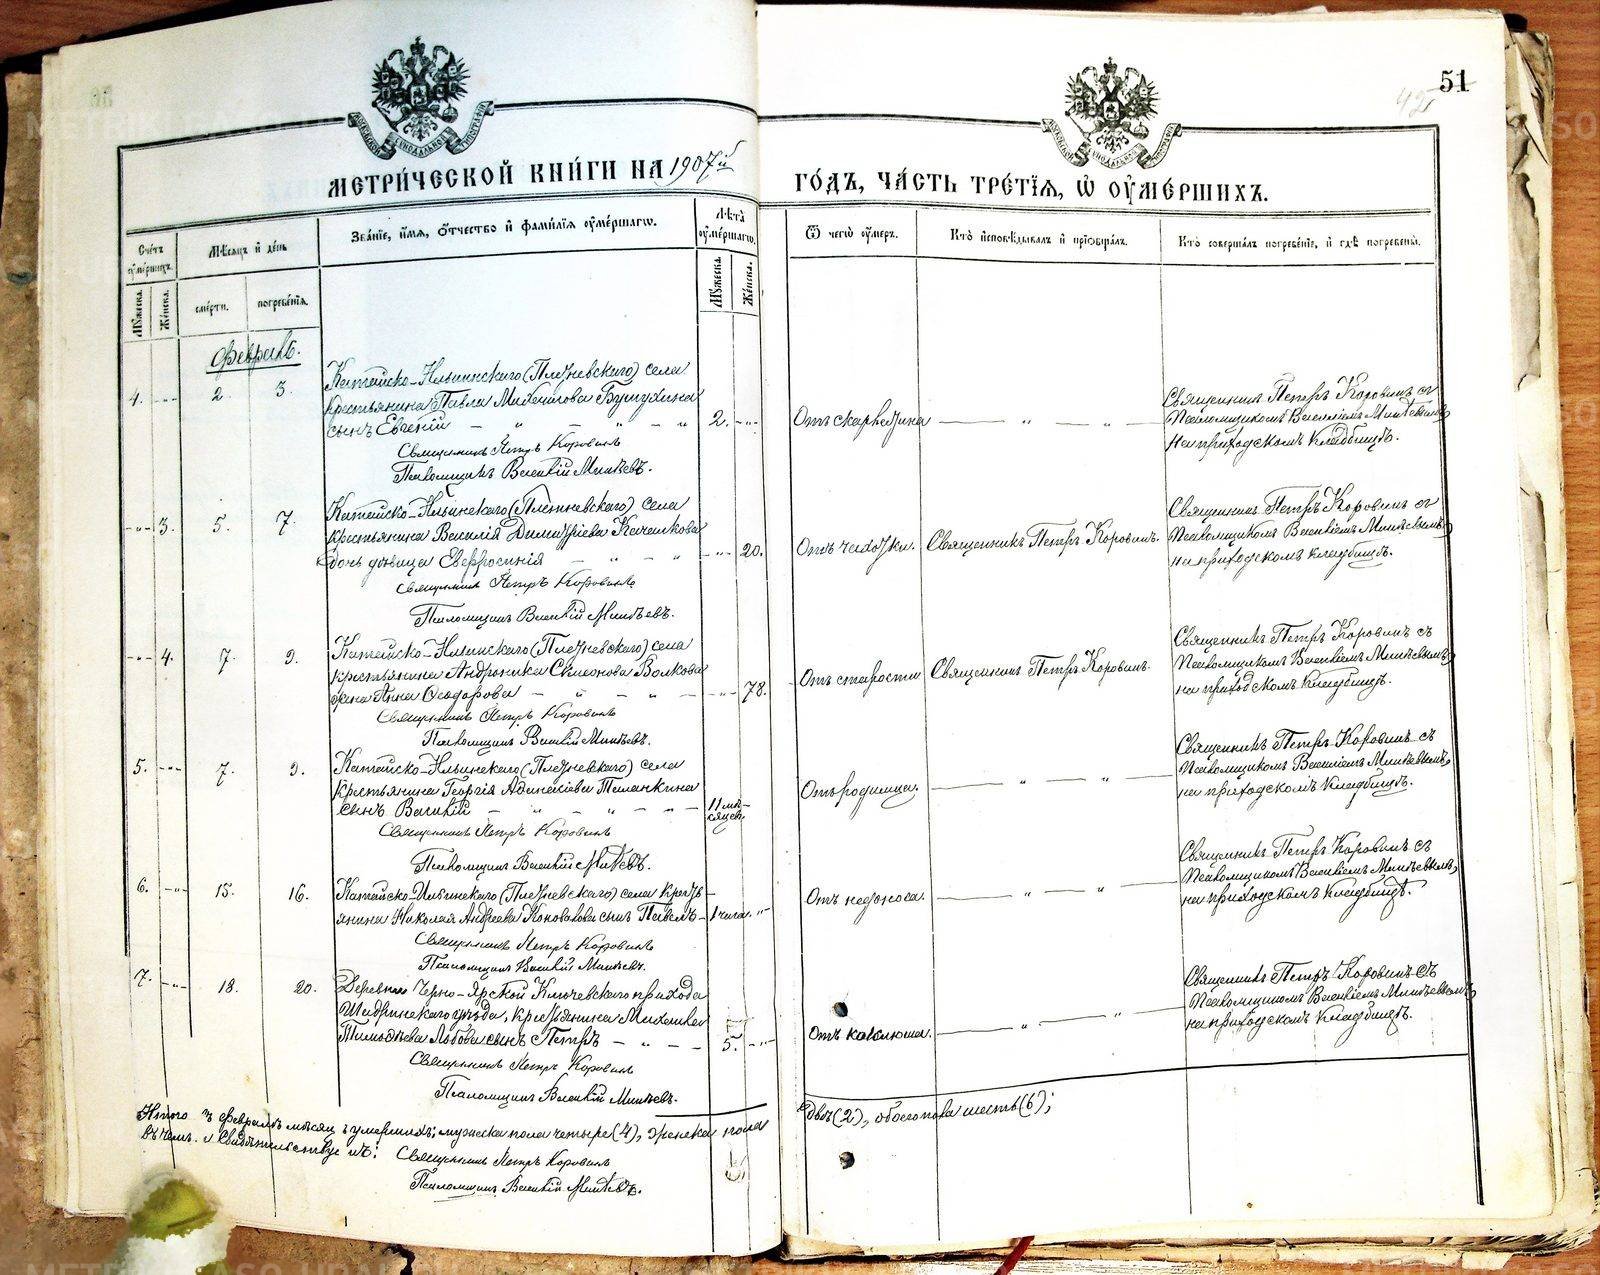 51
42
МЕТРИ́ЧЕСКОЙ КНИ́ГИ НА 1907й
ГО́ДЪ, ЧА́СТЬ ТРЕ́ТЇЯ, Ѡ҆ ОУ҆МЕ́РШИХЪ.
Счётъ оумершихъ.
Мѣсяцъ и день
Званіе, имя, отчество и фамилія оумершагω.
Лѣта оумершагω.
Ѿ чегω оумеръ.
Кто исповѣдывалъ и пріобщалъ.
Кто совершалъ погребеніе, и гдѣ погребены.
Мужеска.
Женска.
смерти.
погребенія.
Мужеска.
Женска.
Февраль.
4. -„- 2 3.
Катайско-Ильинскаго (Плетневскаго) села
крестьянина Павла
сынъ Евгеній — „ — „ — „ 2. -„-
Священникъ Петръ Коровинъ
Псаломщикъ Василій
Отъ скарлатина — „ — „ —
Священникъ Петръ Коровинъ съ
Псаломщикомъ Василіемъ
на приходскомъ кладбищѣ.
-„- 3. 5. 7.
Катайско-Ильинскаго (Плетневскаго) села
крестьянина Василія Димитріева
дочь дѣвица Евфросинія — „ — „ -„- 20.
Священникъ Петръ Коровинъ
Псаломщикъ Василій
Отъ чахотки. Священникъ Петръ Коровинъ.
Священникъ Петръ Коровинъ съ
Псаломщикомъ Василіемъ
на приходскомъ кладбищѣ.
-„- 4. 7. 9.
Катайско-Ильинскаго (Плетневскаго) села
крестьянина Андроника Симеонова Волкова
жена Анна Ѳеодорова — „ — „ — -„- 78.
Священникъ Петръ Коровинъ
Псаломщикъ Василій
Отъ старости Священникъ Петръ Коровинъ.
Священникъ Петръ Коровинъ съ
Псаломщикомъ Василіемъ
на приходскомъ кладбищѣ.
5. -„- 7. 9.
Катайско-Ильинскаго (Плетневскаго) села
крестьянина Георгія
сынъ Василій — „ — „ — 11 мѣсяцев.
Священникъ Петръ Коровинъ
Псаломщикъ Василій
Отъ родимца. — „ — „ —
Священникъ Петръ Коровинъ съ
Псаломщикомъ Василіемъ
на приходскомъ кладбищѣ.
6. -„- 15. 16.
Катайско-Ильинскаго (Плетневскаго) села кресть-
янина Николая Андреева Коновалова сынъ Павелъ — 1 часа. „
Священникъ Петръ Коровинъ
Псаломщикъ Василій
Отъ недоноса. — „ — „ —
Священникъ Петръ Коровинъ съ
Псаломщикомъ Василіемъ
на приходскомъ кладбищѣ.
7. -„- 18. 20.
Деревни Черно-Ярской Ключевскаго прихода
Шадринскаго уѣзда, крестьянина
сынъ Петръ — „ — — 5. -„-
Священникъ Петръ Коровинъ
Псаломщикъ Василій
Отъ коклюша. — „ — „ —
Священникъ Петръ Коровинъ съ
Псаломщикомъ Василіемъ
на приходскомъ кладбищѣ.
Итого въ февралѣ мѣсяцѣ умершихъ: мужеска пола четыре (4), женска пола двѣ (2), обоего пола шесть (6);
въ чемъ и свидѣтельствуемъ: Священникъ Петръ Коровинъ
Псаломщикъ Василій